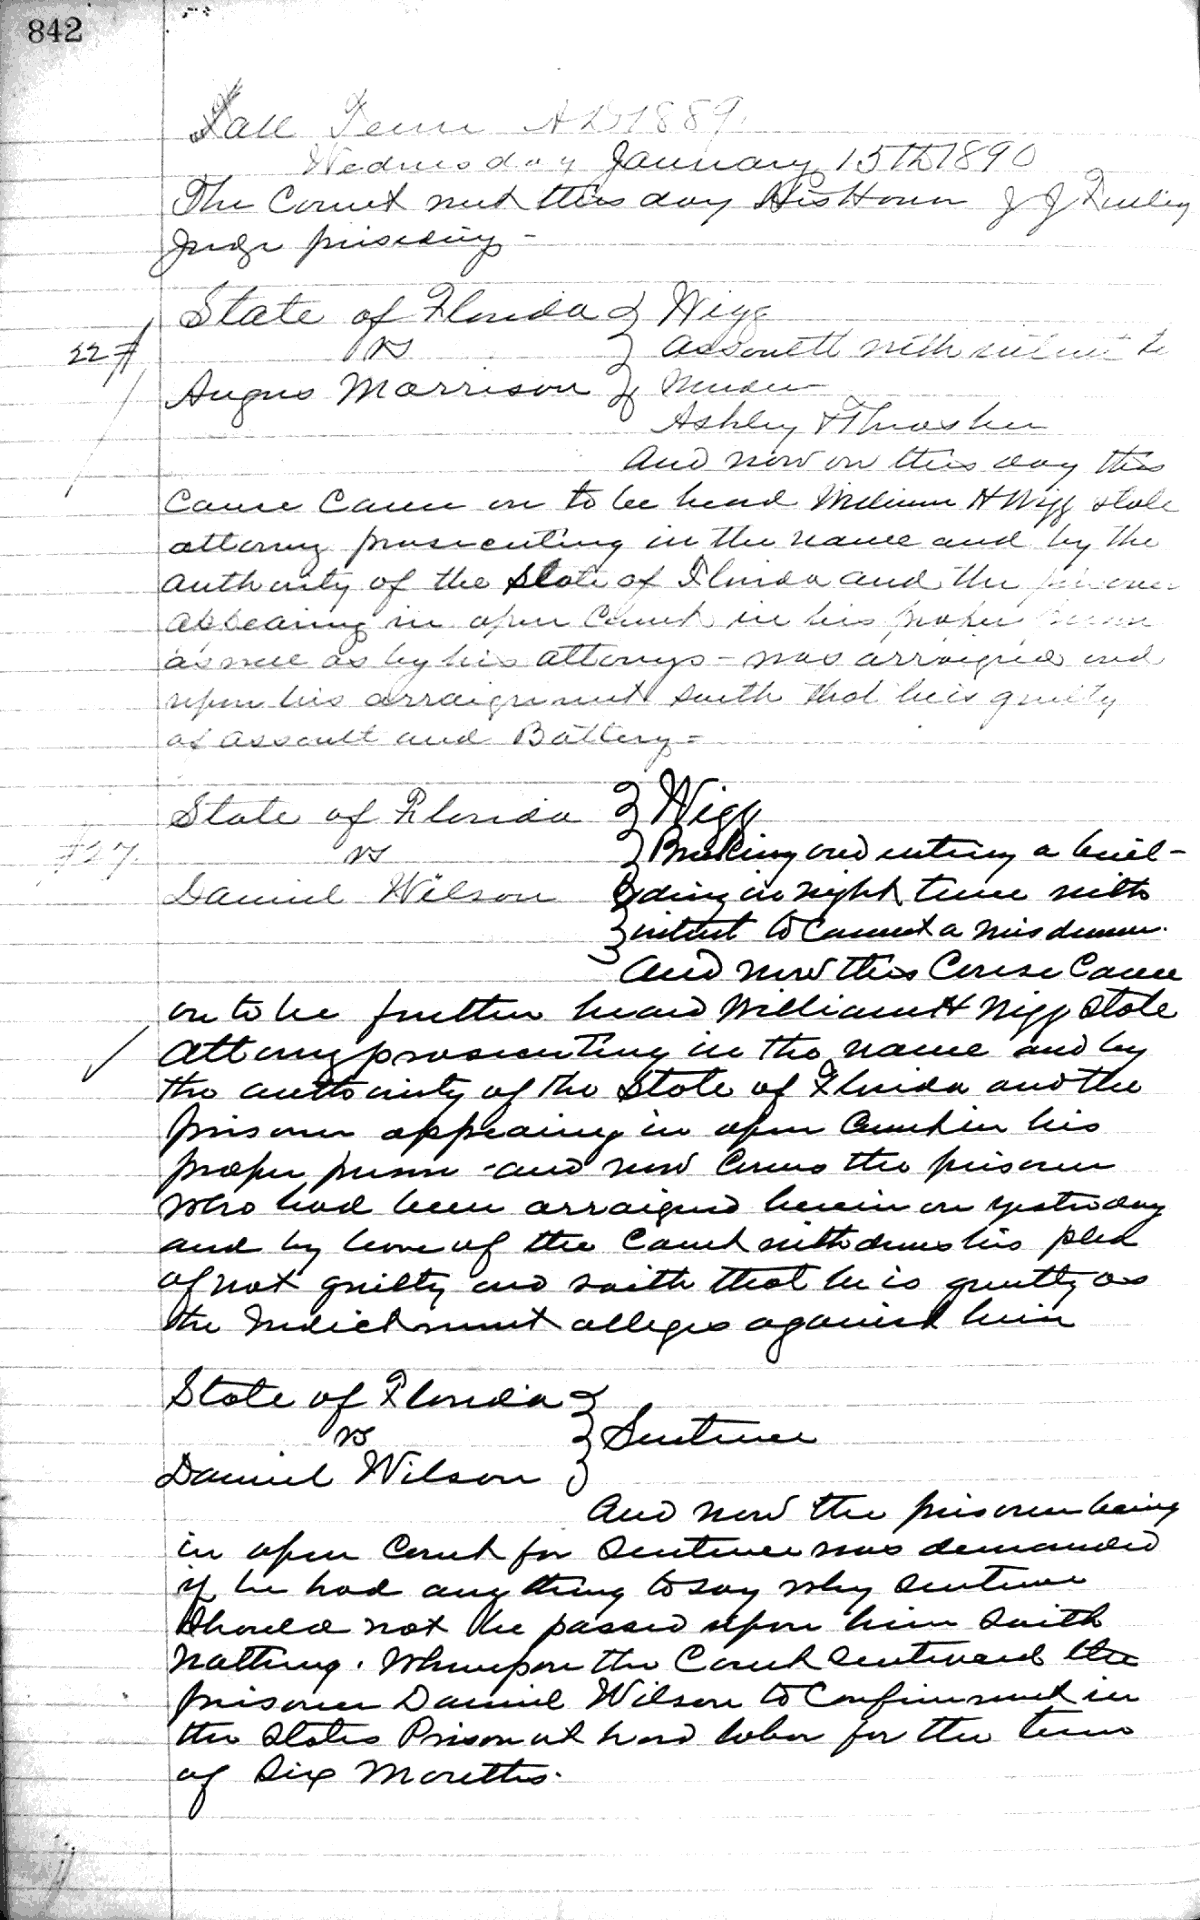 842
Fall Term A D 1889.
Wednesday January 15th 1890
The Court met this day His Honor J J Finley
Judge presiding -
State of Florida } Wigg
22 # vs } Assault with intent to
Angus Morrison } Murder
Ashley & Thrasher
And now on this day this
Cause Came on to be heard William H Wigg State
attorney prosecuting in the name and by the
authority of the State of Florida and the prisoner
appearing in open Court in his proper person
as well as by his attorneys - was arraigned and
upon his arraignment saith that he is guilty
of assault and Battery =
State of Florida } Wigg
#27. vs } Breaking and entering a buil-
Daniel Wilson } ding in night time with
} intent to Commit a misdemer.
And now this Cause Came
on to be further heard William H Wigg State
Attorney prosecuting in the name and by
the authority of the State of Florida and the
prisoner appearing in open Court in his
proper person - and now Comes the prisoner
who had been arraigned herein on yesterday
and by leave of the Court withdraws his plea
of not guilty and saith that he is guilty as
the Indictment alleges against him
State of Florida }
vs } Sentence
Daniel Wilson }
And now the prisoner being
in open Court for Sentence was demanded
if he had any thing to say why Sentence
Should not be passed upon him Saith
Nothing. Whereupon the Court Sentenced the
prisoner Daniel Wilson to Confinement in
the States Prison at hard labor for the term
of Six Months.